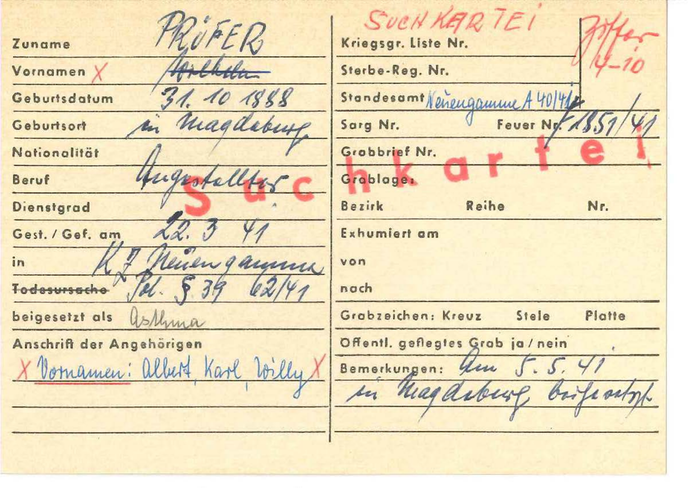 SUCHKARTEI
Ziffer
4-10
Zuname PRÜFER
Vornamen X Wilhelm
Geburtsdatum 31. 10 1888
Geburtsort in Magdeburg
Nationalität
Beruf Angestellter
Dienstgrad
Gest. / Gef. am 22. 3 41
in KZ Neuengamme
Todesursache Pol. § 39 62/41
beigesetzt als Asthma
Anschrift der Angehörigen
X Vornamen: Albert, Karl, Willy X
Kriegsgr. Liste Nr.
Sterbe-Reg. Nr.
Standesamt Neuengamme A 40/41
Sarg Nr. Feuer Nr. 1851/41
Grabbrief Nr.
Suchkartei
Grablage:
Bezirk Reihe Nr.
Exhumiert am
von
nach
Grabzeichen: Kreuz Stele Platte
Öffentl. gepflegtes Grab ja / nein
Bemerkungen: Am 5. 5. 41
in Magdeburg beigesetzt.